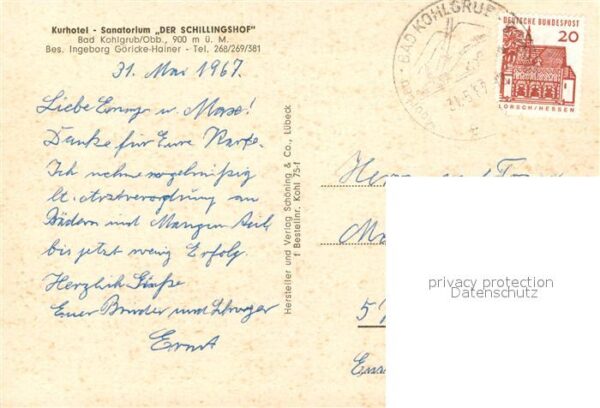 Kurhotel - Sanatorium „DER SCHILLINGSHOF"
Bad Kohlgrub/Obb., 900 m ü. M.
Bes. Ingeborg Göricke-Hainer - Tel. 268/269/381
31. Mai 1967.
Liebe u. Max!
Danke für Eure Karte.
Ich nehme regelmäßig
lt. Arztverordnung an
Bädern und teil
bis jetzt wenig Erfolg.
Herzlich Grüße
Euer Bruder und Schwager
Ernst
Hersteller und Verlag Schöning & Co., Lübeck
f Bestellnr. Kohl 75-f
BAD KOHLGRUB
DEUTSCHE BUNDESPOST
20
LORSCH/HESSEN
privacy protection
Datenschutz